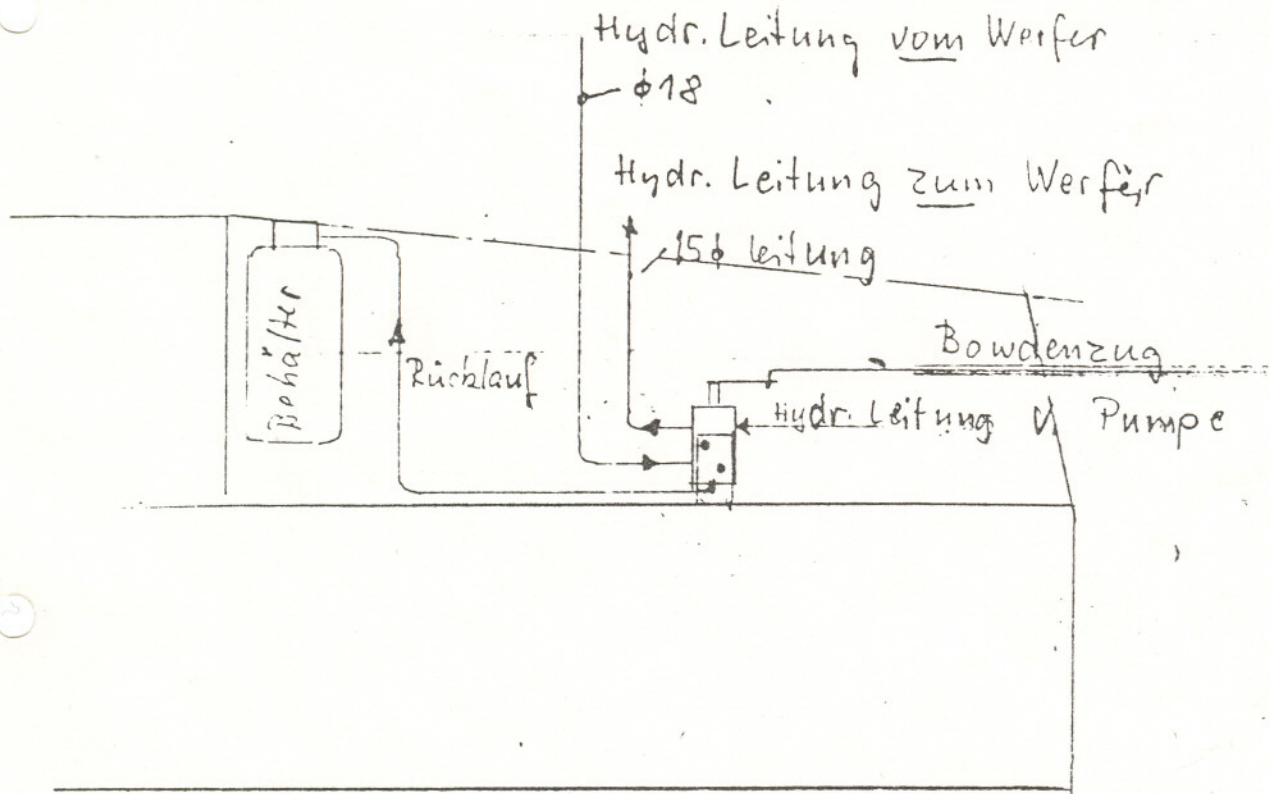 Hydr. Leitung vom Werfer
ϕ18
Hydr. Leitung zum Werfer
15ϕ Leitung
Behälter
Rücklauf
Bowdenzug
Hydr. Leitung v. Pumpe